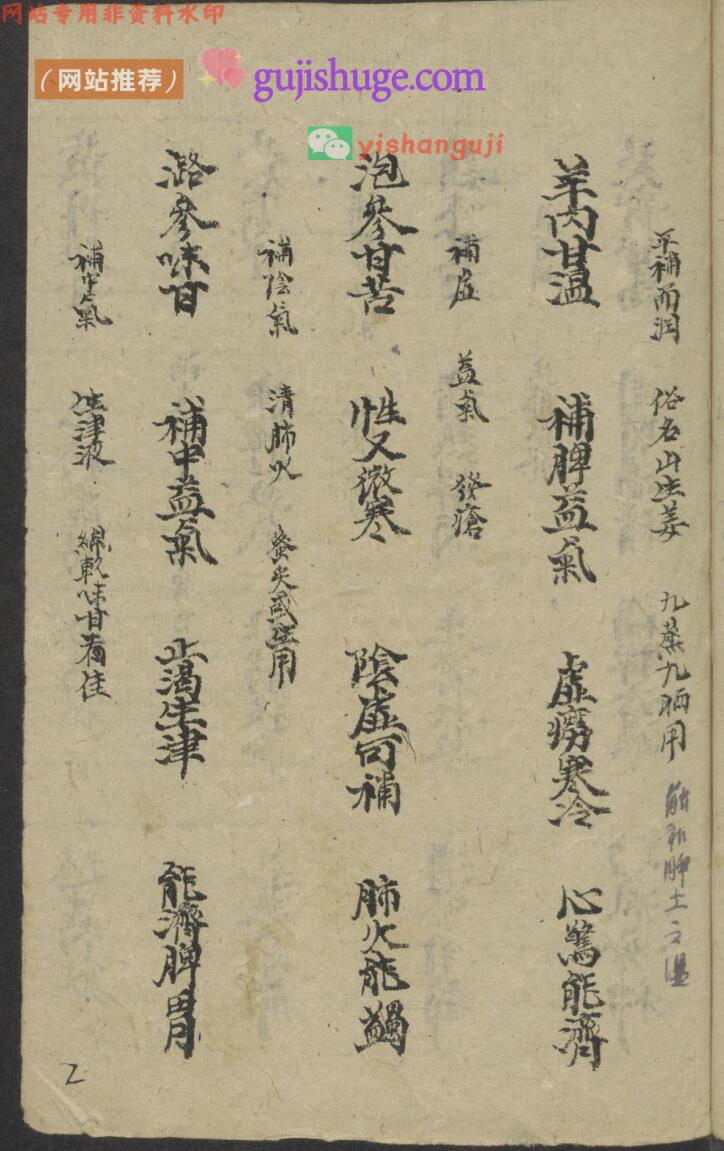 网站专用非资料水印
(网站推荐) gujishuge.com
yishanguji
平補而潤 俗名山生姜 九蒸九晒用 能和脾土之濕
羊肉甘温 補脾益氣 虛癆寒冷 心驚能濟
補虛 益氣 發瘡
泡參甘苦 性又微寒 陰虛可補 肺火能蠲
補陰氣 清肺火 蜜炙或生用
潞參味甘 補中益氣 止渴生津 能濟脾胃
補中氣 生津液 綿軟味甘者佳
2